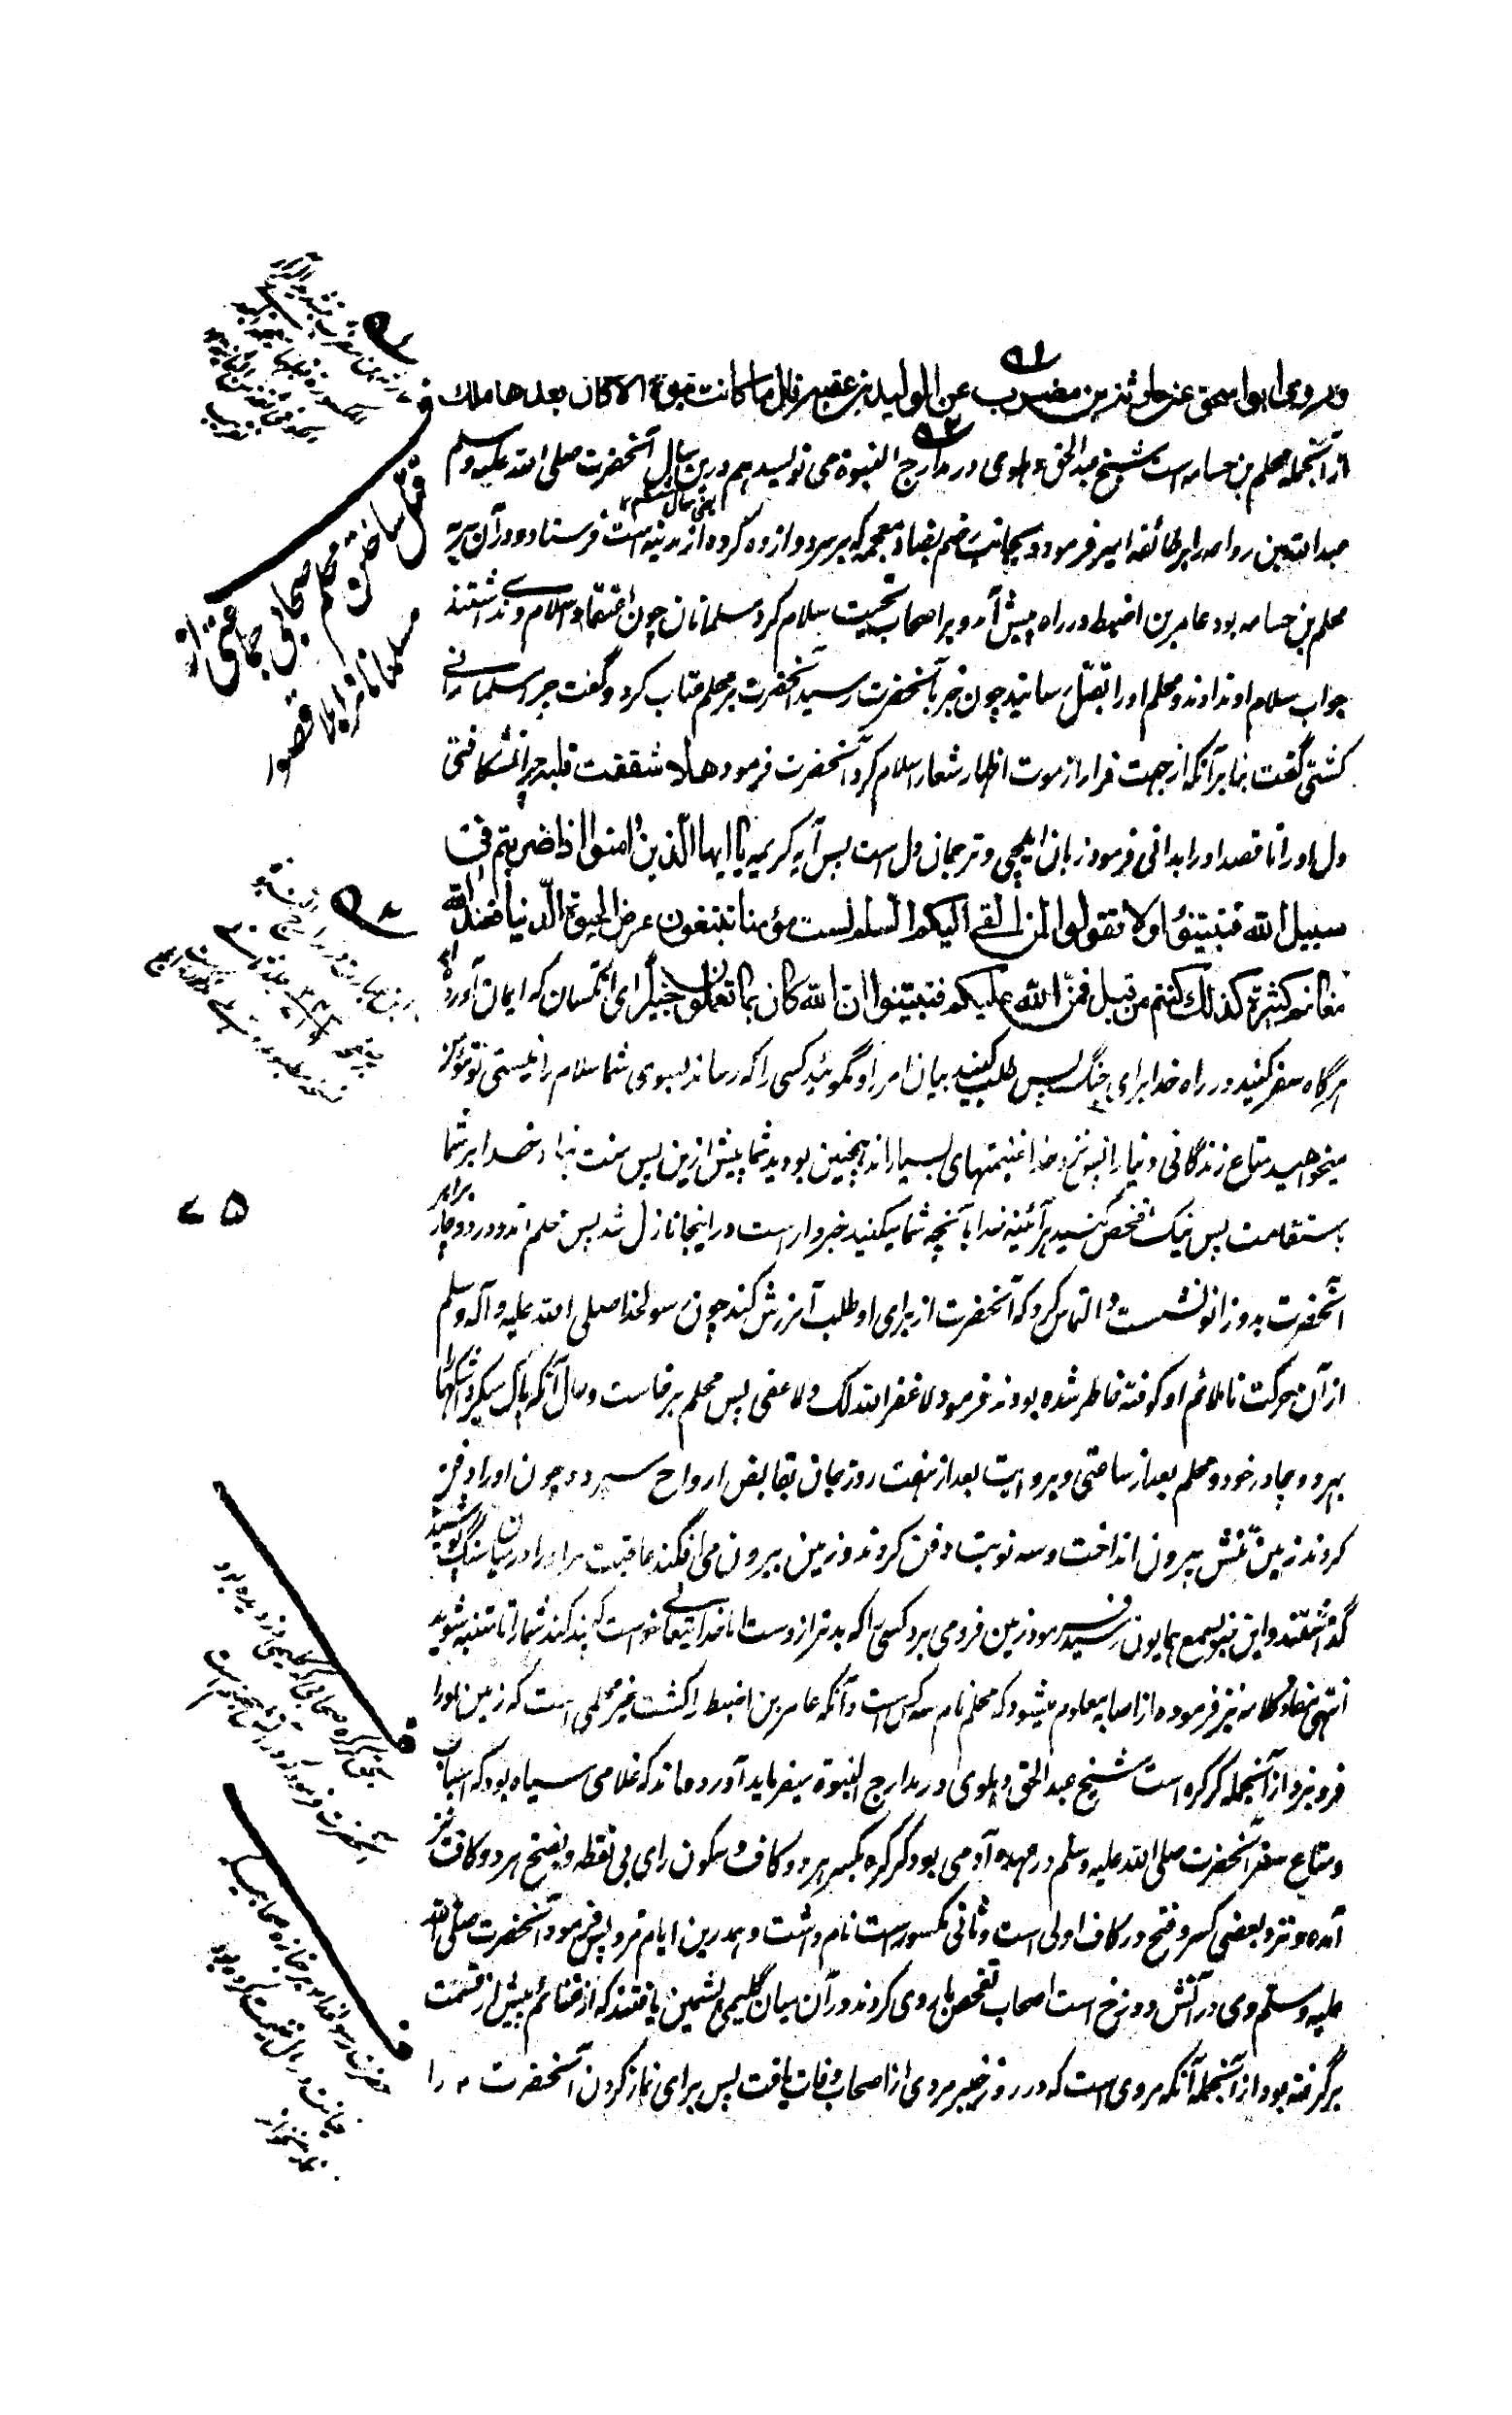 وروی ابو اسحق عن حارثة بن مضرب عن الولید بن عقبه قال ما کانت نبوة الا کان بعدها ملك
از آنجمله محلم بن جسامه است شیخ عبد الحق دهلوی در مدارج النبوة می نویسد هم درین سال آنحضرت صلی الله علیه وسلم
یعنی سال هشتم
عبد الله بن رواحه را بر طائفه امیر فرمود و بجانب اضم بضاد معجمه که بر سر دوازده کروه از مدینه است فرستاد و در آن سریه
محلم بن جسامه بود عامر بن اضبط در راه پیش آمد و بر اصحاب تحیت سلام کرد مسلمانان چون اعتقاد اسلام وی نداشتند
جواب سلام او ندادند و محلم او را بقتل رسانید چون خبر بآنحضرت رسید آنحضرت بر محلم عتاب کرد و گفت چرا مسلمانی را
کشتی گفت بنابر آنکه از جهت فرار از موت اظهار شعار اسلام کرد آنحضرت فرمود هلا شققت قلبه چرا نشگافتی
دل او را تا قصد او را بدانی فرمود زبان ایلچی و ترجمان دل است پس آیه کریمه یا ایها الذین امنوا اذا ضربتم فی
سبیل الله فتبینوا ولا تقولوا لمن القی الیکم السلم لست مؤمنا تبتغون عرض الحیوة الدنیا فعند الله
مغانم کثیرة کذلك کنتم من قبل فمن الله علیکم فتبینوا ان الله کان بما تعملون خبیرا ای آنکسان که ایمان آورده اید
هرگاه سفر کنید در راه خدا برای جنگ پس طلب کنید بیان امر را و مگوئید کسی را که رساند بسوی شما سلام را نیستی تو مؤمن
میخواهید متاع زندگانی دنیا را پس نزد خدا غنیمتهای بسیار اند همچنین بودید شما پیش ازین پس منت نهاد خدا بر شما
باستقامت پس نیک تفحص کنید هر آئینه خدا بآنچه شما میکنید خبردار است در اینجا نازل شد پس محلم آمد و در دو چادر برابر
آنحضرت بدو زانو نشست و التماس کرد که آنحضرت از برای او طلب آمرزش کند چون رسولخدا صلی الله علیه و آله وسلم
از آن حرکت ناملائم او کوفته خاطر شده بودند فرمود لا غفر الله لک ولا عفی پس محلم برخاست و حال آنکه پاک میکرد اشکها
بهر دو چادر خود و محلم بعد از ساعتی و بروایت بعد از هفت روز جان بقابض ارواح سپرد و چون او را دفن
کردند زمین نعشش بیرون انداخت و سه نوبت دفن کردند و زمین بیرون می افگند عاقبت مر او را در میان سنگ پوشیده
گذاشتند و این خبر بسمع همایون رسید فرمود زمین فرو می برد کسی را که بدتر از وست اما خدا تعالی خواست که پند کند شما را تا متنبه شوید
انتهی مفاد کلامه نیز فرموده از اصابه معلوم میشود که محلم نام سه کس است و آنکه عامر بن اضبط را کشت غیر محلمی است که زمین او را
فرو نبرد از آنجمله کرکره است شیخ عبد الحق دهلوی در مدارج النبوة میفرماید آورده اند که غلامی سیاه بود که اسباب
و متاع سفر آنحضرت صلی الله علیه وسلم در عهده آدمی بود کرکره بکسر هر دو کاف و سکون رای بی نقطه و بفتح هر دو کاف نیز
آمده و نزد بعضی کسر و فتح در کاف اولی است و ثانی مکسور است نام داشت و همدرین ایام مرد پس فرمود آنحضرت صلی الله
علیه وسلم وی در آتش دوزخ است اصحاب تفحص بار وی کردند در آن میان گلیمی پشمین یافتند که از غنائم پیش از قسمت
برگرفته بود از آنجمله آنکه مروی است که در روز خیبر مردی از اصحاب وفات یافت پس برای نماز کردن آنحضرت ص را
۷۵
قتل ساختن محلم صحابی جماعتی از
مسلمانانرا بلا قصور